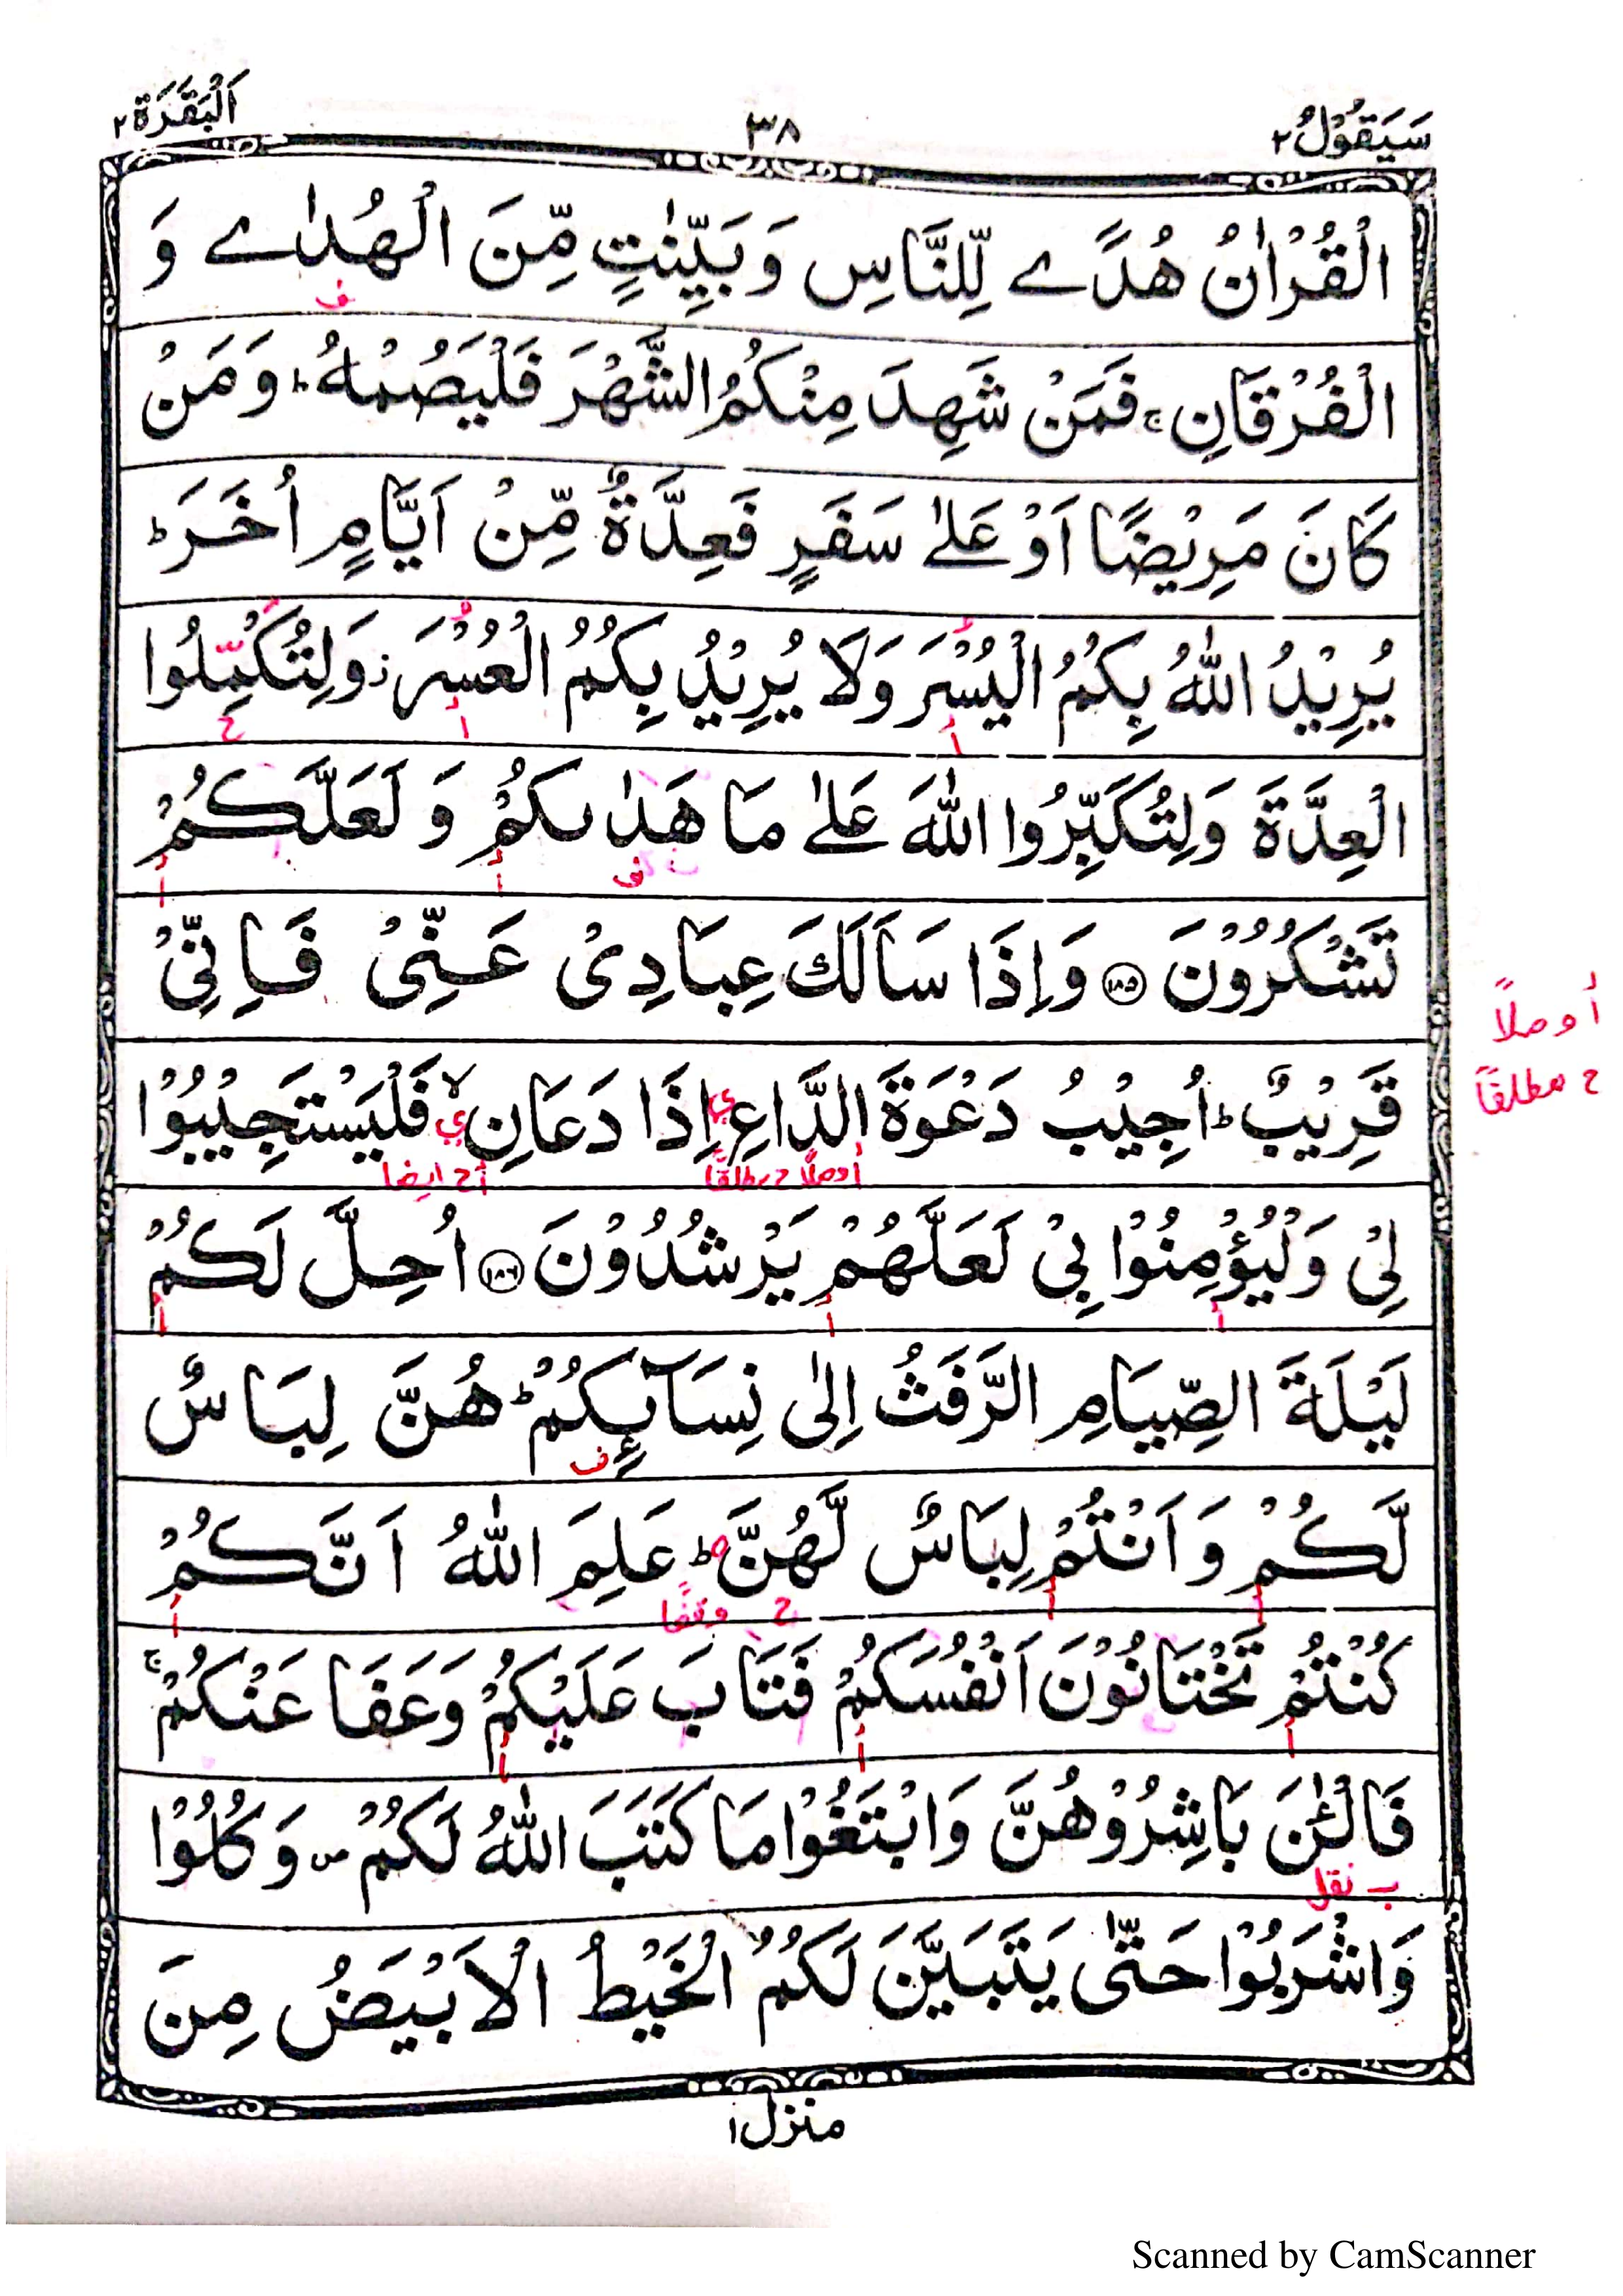 سَيَقُوْلُ ٢
٣٨
اَلْبَقَرَة ٢
الْقُرْاٰنُ هُدًے لِّلنَّاسِ وَ بَيِّنٰتٍ مِّنَ الْهُدٰے وَ
ف
الْفُرْقَانِ ۚ فَمَنْ شَهِدَ مِنْكُمُ الشَّهْرَ فَلْيَصُمْهُ ؕ وَ مَنْ
كَانَ مَرِيْضًا اَوْ عَلٰے سَفَرٍ فَعِدَّةٌ مِّنْ اَيَّامٍ اُخَرَ ؕ
يُرِيْدُ اللّٰهُ بِكُمُ الْيُسْرَ وَلَا يُرِيْدُ بِكُمُ الْعُسْرَ ز وَلِتُكْمِلُوا
أ أ ح
الْعِدَّةَ وَلِتُكَبِّرُوا اللّٰهَ عَلٰے مَا هَدٰىكُمْ وَ لَعَلَّكُمْ
ف أ أ
تَشْكُرُوْنَ ۝١٨٥ وَاِذَا سَاَلَكَ عِبَادِىْ عَنِّىْ فَاِنِّىْ
أ وصلاً
ح مطلقاً
قَرِيْبٌ ؕ اُجِيْبُ دَعْوَةَ الدَّاعِ اِذَا دَعَانِ ۙ فَلْيَسْتَجِيْبُوْا
ي ي
أ وصلاً ح مطلقاً أح ايضا
لِىْ وَلْيُؤْمِنُوْا بِىْ لَعَلَّهُمْ يَرْشُدُوْنَ ۝١٨٦ اُحِلَّ لَكُمْ
أ أ أ
لَيْلَةَ الصِّيَامِ الرَّفَثُ اِلٰى نِسَآئِكُمْ ؕ هُنَّ لِبَاسٌ
ف
لَّكُمْ وَ اَنْتُمْ لِبَاسٌ لَّهُنَّ ؕ عَلِمَ اللّٰهُ اَنَّكُمْ
أ أ ح وقفاً أ
كُنْتُمْ تَخْتَانُوْنَ اَنْفُسَكُمْ فَتَابَ عَلَيْكُمْ وَعَفَا عَنْكُمْ ۚ
أ أ أ
فَالْـٰٔنَ بَاشِرُوْهُنَّ وَ ابْتَغُوْا مَا كَتَبَ اللّٰهُ لَكُمْ ص وَ كُلُوْا
ب نقل
وَاشْرَبُوْا حَتّٰى يَتَبَيَّنَ لَكُمُ الْخَيْطُ الْاَبْيَضُ مِنَ
منزل ١
Scanned by CamScanner